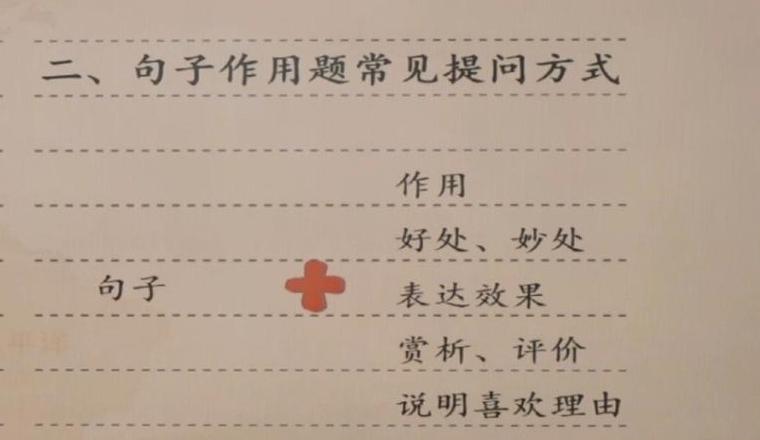 二、句子作用题常见提问方式
作用
好处、妙处
句子
表达效果
赏析、评价
说明喜欢理由